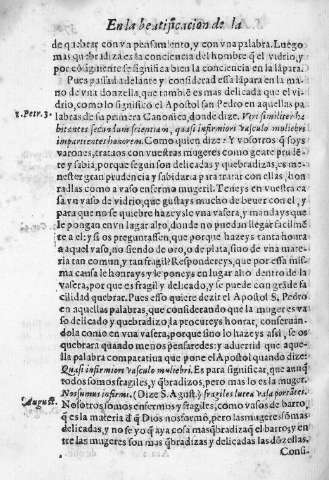 En la beatificacion de la
de quebrar con vn pensamiento, y con vna palabra. Luego
mas quebradiza es la conciencia del hombre q̃ el vidrio, y
por cõsiguiente se significa bien la conciencia en la lápara.
Pues passad adelante y considerad essa lápara en la ma-
no de vna donzella, que tambiẽ es mas delicada que el vi-
drio, como lo significò el Apostol san Pedro en aquellas pa
1. Petr. 3.
labras de su primera Canonica, donde dize. Viri similiter ha
bitantes secundum scientiam, quasi infirmiori vasculo muliebri
impartientes honorem. Como quien dize: Y vosotros q̃ soys
varones, tratad con vuestras mugeres como gente prudẽ-
te y sabia, porque segun son delicadas y quebradizas, es me-
nester gran prudencia y sabiduria para tratar con ellas, hon
radlas como a vaso enfermo mugeril. Teneys en vuestra ca
sa vn vaso de vidrio, que gustays mucho de beuer con el, y
para que no se quiebre hazeysle vna vasera, y mandays que
le pongan en vn lugar alto, donde no puedan llegar facilmẽ
te a el; y si os preguntassen, que porque hazeys tanta honra
a aquel vaso, no siendo de oro, de plata, sino de vna mate-
ria tan comun, y tan fragil? Respondereys, que por essa mis-
ma causa le honrays y le poneys en lugar alto dentro de la
vasera, por que es fragil y delicado, y se puede con grãde fa
cilidad quebrar. Pues esso quiere dezir el Apostol S. Pedro
en aquellas palabras, que considerando que la muger es va
so delicado y quebradizo, la procureys honrar, conseruan-
dola como en vna vasera, porque sino lo hazeys assi, se os
quebrara quando menos pensaredes: y aduertid que aque-
lla palabra comparatiua que pone el Apostol quando dize:
Quasi infirmiori vasculo muliebri. Es para significar, que aunq̃
todos somos fragiles, y q̃bradizos, pero mas lo es la muger.
August.
Nos sumus infirmi. (Dize S. Agust.) fragiles lutea vasa portãtes.
Nosotros somos enfermos y fragiles, como vasos de barro,
q̃ es la materia d̃ q̃ Dios nos formò, pero las mugeres sõ mas
delicadas, y no se yo q̃ aya cosa mas q̃bradiza q̃ el barro; y en
tre las mugeres son mas q̃bradizas y delicadas las dõzellas.
Consi-